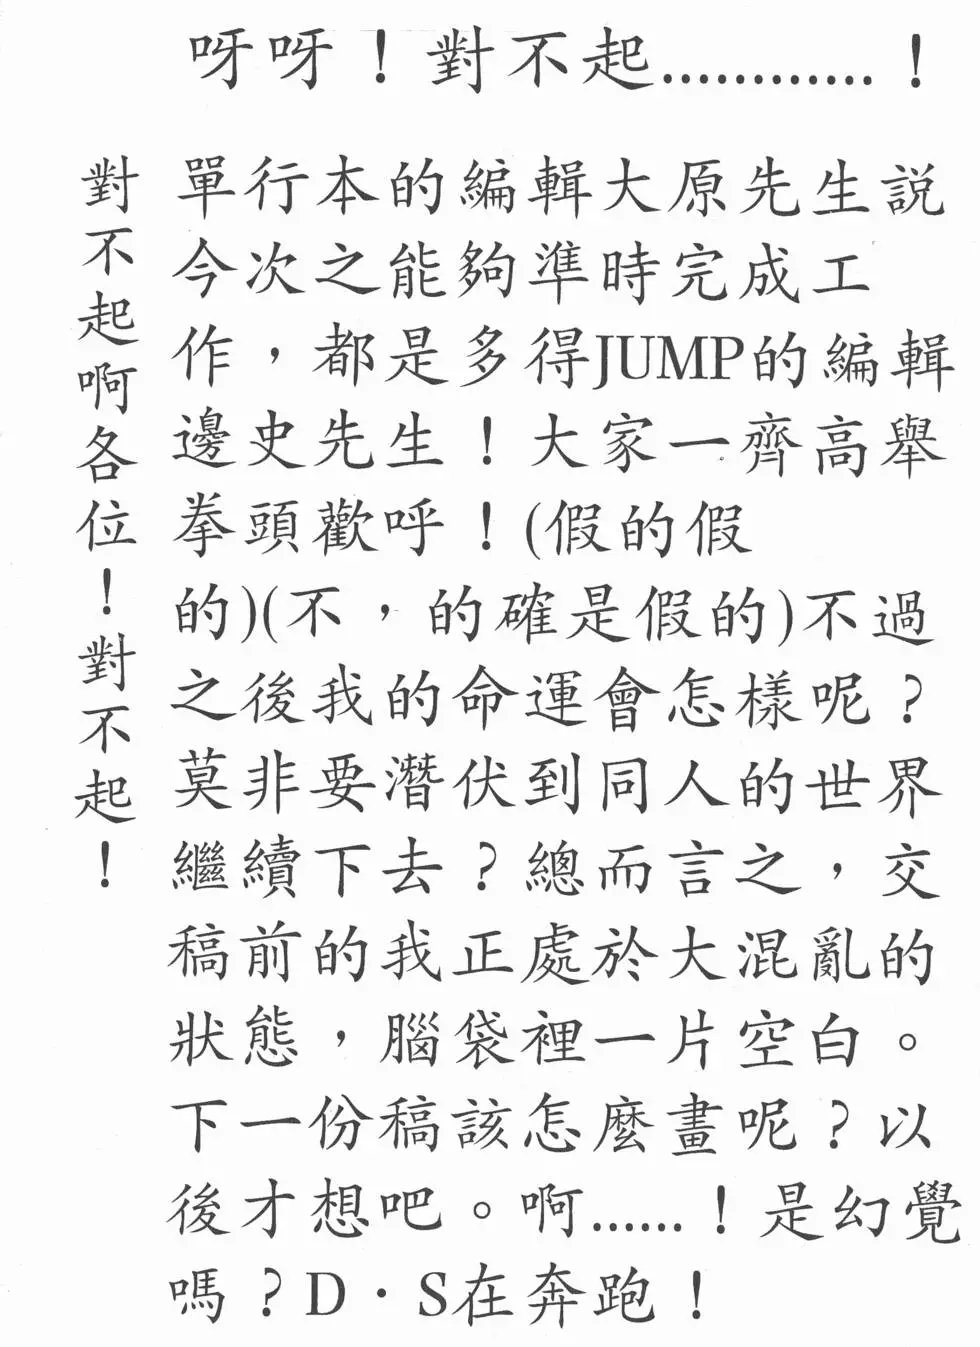 呀呀！對不起............！
單行本的編輯大原先生説
今次之能夠準時完成工
作，都是多得JUMP的編輯
邊史先生！大家一齊高舉
拳頭歡呼！(假的假
的)(不，的確是假的)不過
之後我的命運會怎樣呢？
莫非要潛伏到同人的世界
繼續下去？總而言之，交
稿前的我正處於大混亂的
狀態，腦袋裡一片空白。
下一份稿該怎麼畫呢？以
後才想吧。啊......！是幻覺
嗎？D·S在奔跑！
對不起啊各位！對不起！